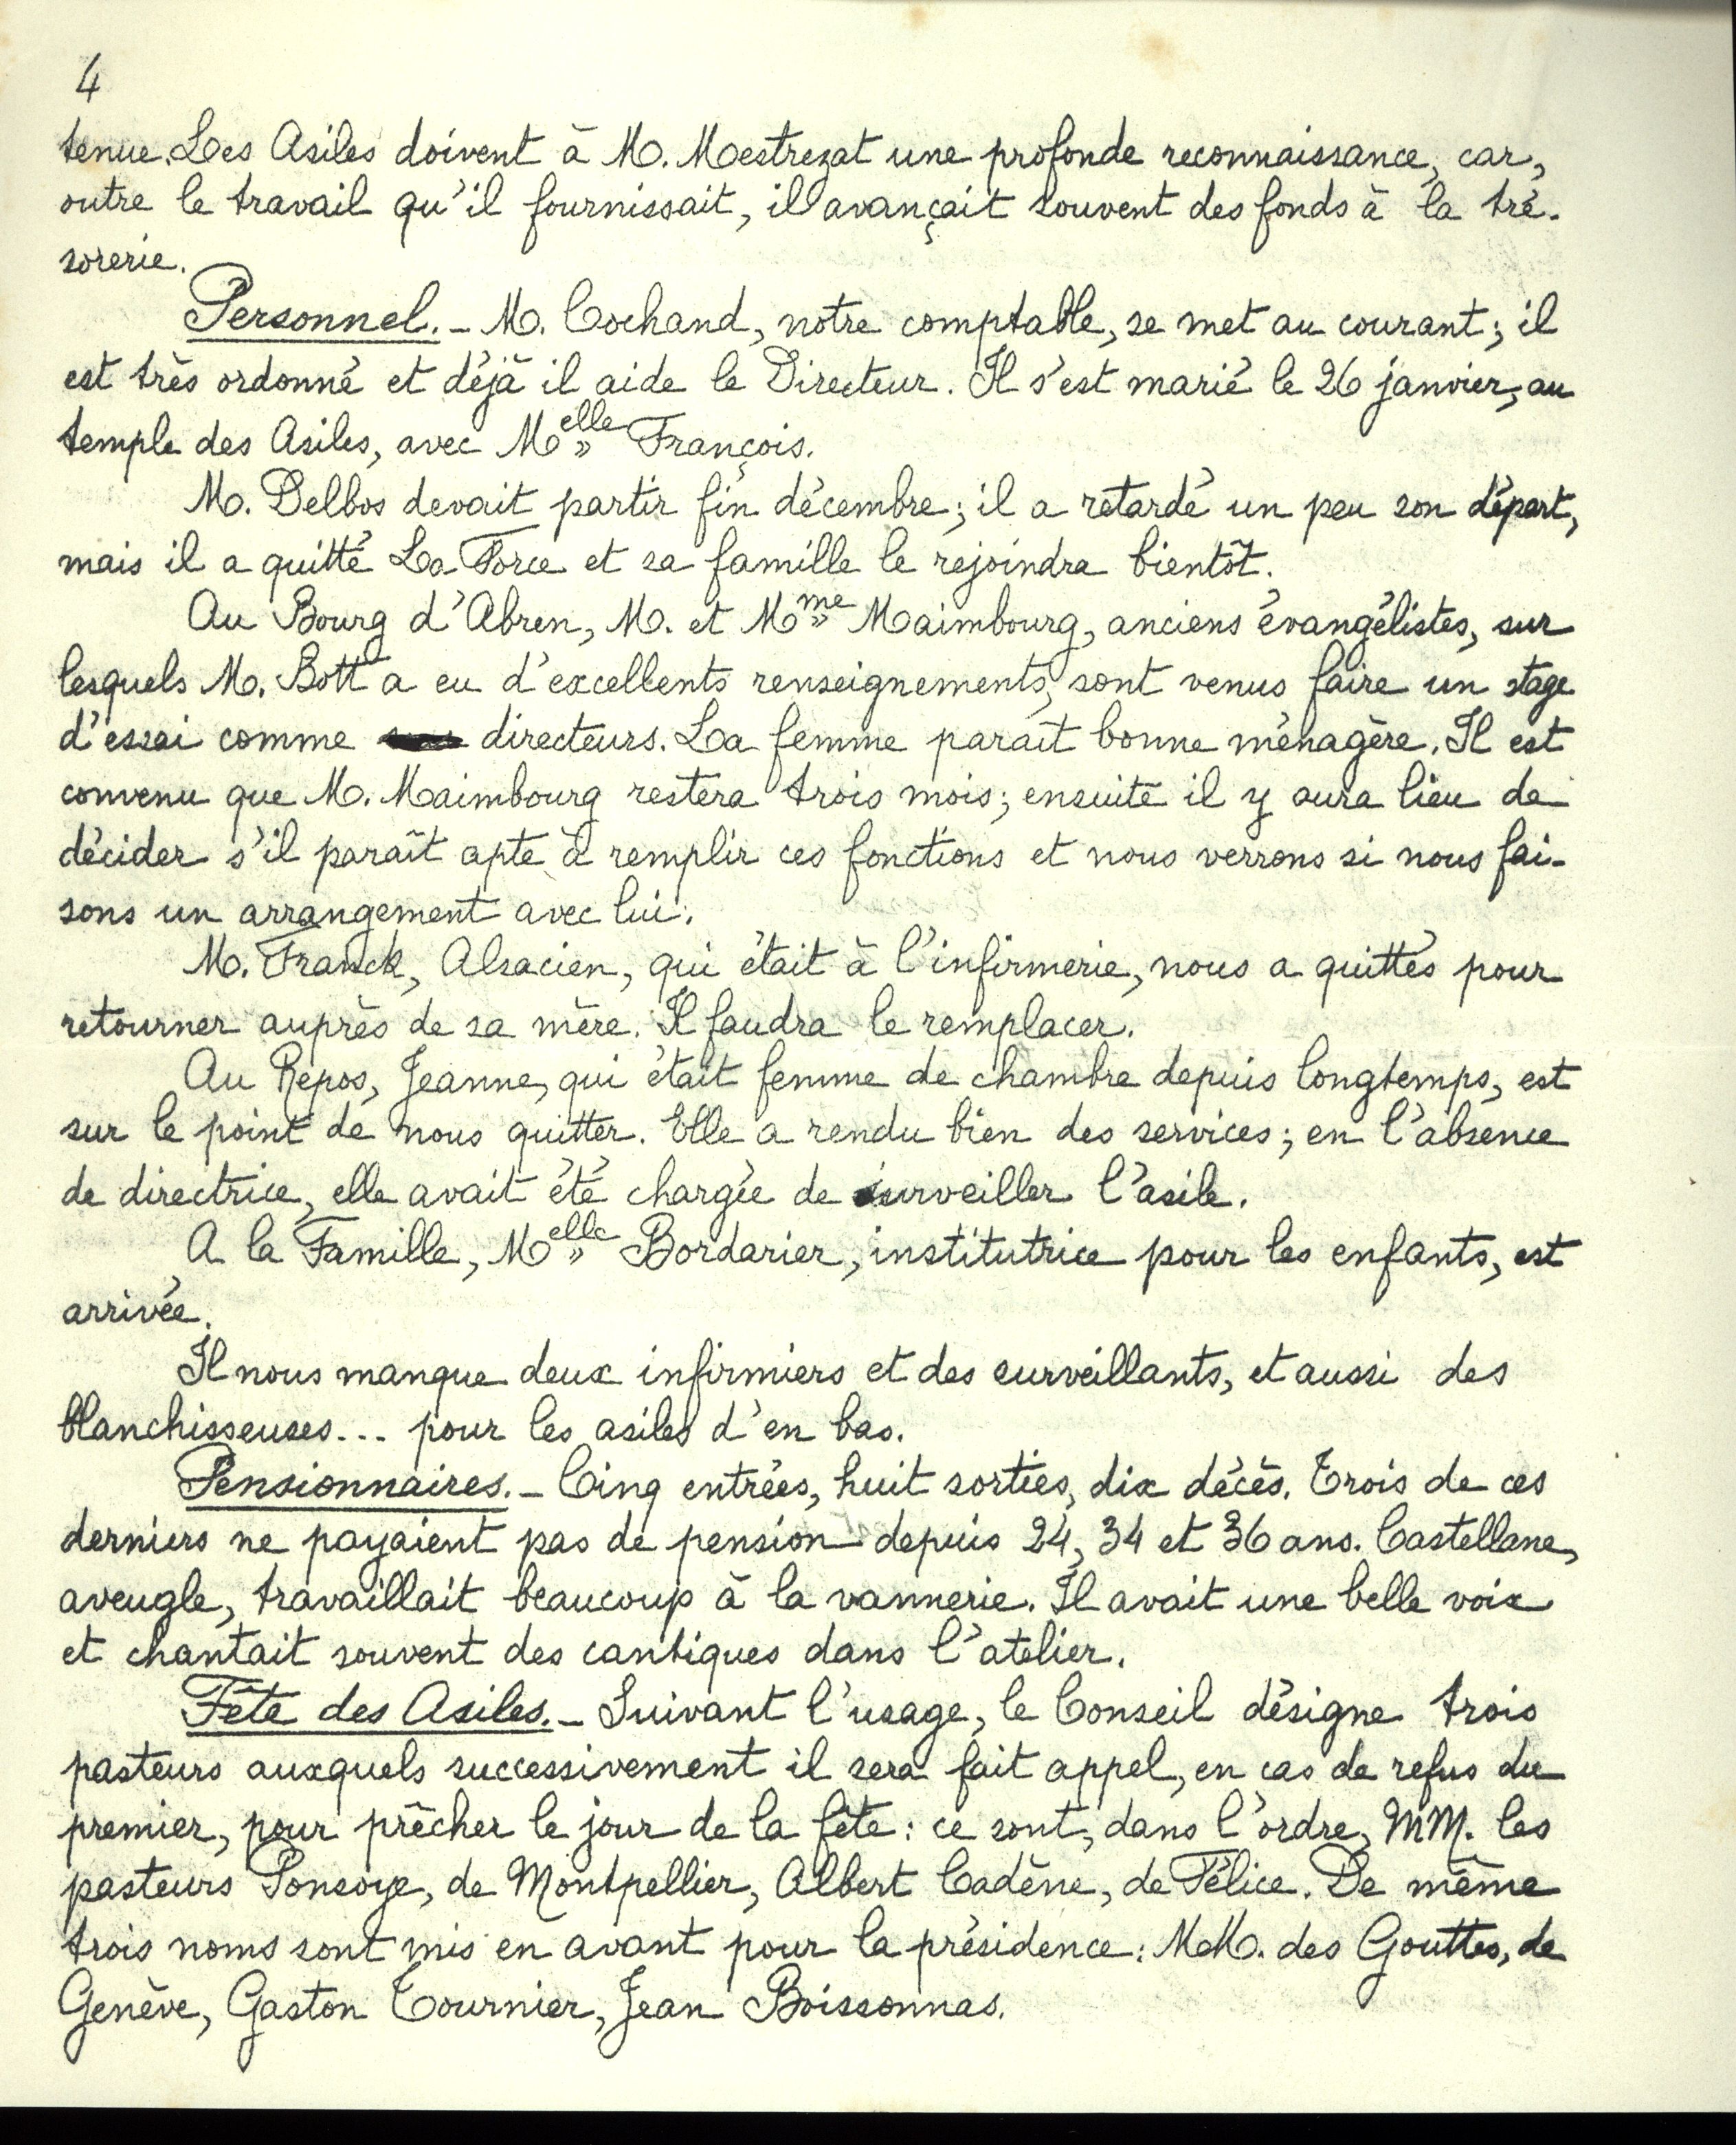 4
tenue. Les Asiles doivent à M. Mestrezat une profonde reconnaissance, car,
outre le travail qu'il fournissait, il avançait souvent des fonds à la tré-
sorerie.
Personnel. - M. Cochand, notre comptable, se met au courant; il
est très ordonné et déjà il aide le Directeur. Il s'est marié le 26 janvier, au
temple des Asiles, avec Melle François.
M. Delbos devait partir fin décembre; il a retardé un peu son départ,
mais il a quitté La Force et sa famille le rejoindra bientôt.
Au Bourg d'Abren, M. et Mme Maimbourg, anciens évangélistes, sur
lesquels M. Bott a eu d'excellents renseignements, sont venus faire un stage
d'essai comme directeurs. La femme paraît bonne ménagère. Il est
convenu que M. Maimbourg restera trois mois; ensuite il y aura lieu de
décider s'il paraît apte à remplir ces fonctions et nous verrons si nous fai-
sons un arrangement avec lui.
M. Franck, Alsacien, qui était à l'infirmerie, nous a quittés pour
retourner auprès de sa mère. Il faudra le remplacer.
Au Repos, Jeanne, qui était femme de chambre depuis longtemps, est
sur le point de nous quitter. Elle a rendu bien des services; en l'absence
de directrice, elle avait été chargée de surveiller l'asile.
A la Famille, Melle Bordarier, institutrice pour les enfants, est
arrivée.
Il nous manque deux infirmiers et des surveillants, et aussi des
blanchisseuses... pour les asiles d'en bas.
Pensionnaires. - Cinq entrées, huit sorties, dix décès. Trois de ces
derniers ne payaient pas de pension depuis 24, 34 et 36 ans. Castellane,
aveugle, travaillait beaucoup à la vannerie. Il avait une belle voix
et chantait souvent des cantiques dans l'atelier.
Fête des Asiles. - Suivant l'usage, le Conseil désigne trois
pasteurs auxquels successivement il sera fait appel, en cas de refus du
premier, pour prêcher le jour de la fête: ce sont, dans l'ordre, MM. les
pasteurs Ponsoye, de Montpellier, Albert Cadène, de Félice. De même
trois noms sont mis en avant pour la présidence: MM. des Gouttes, de
Genève, Gaston Tournier, Jean Boissonnas.